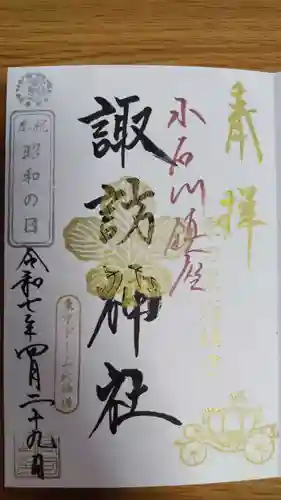 奉拝
小石川鎮座
諏訪神社
奉祝
昭和の日
令和七年四月二十九日